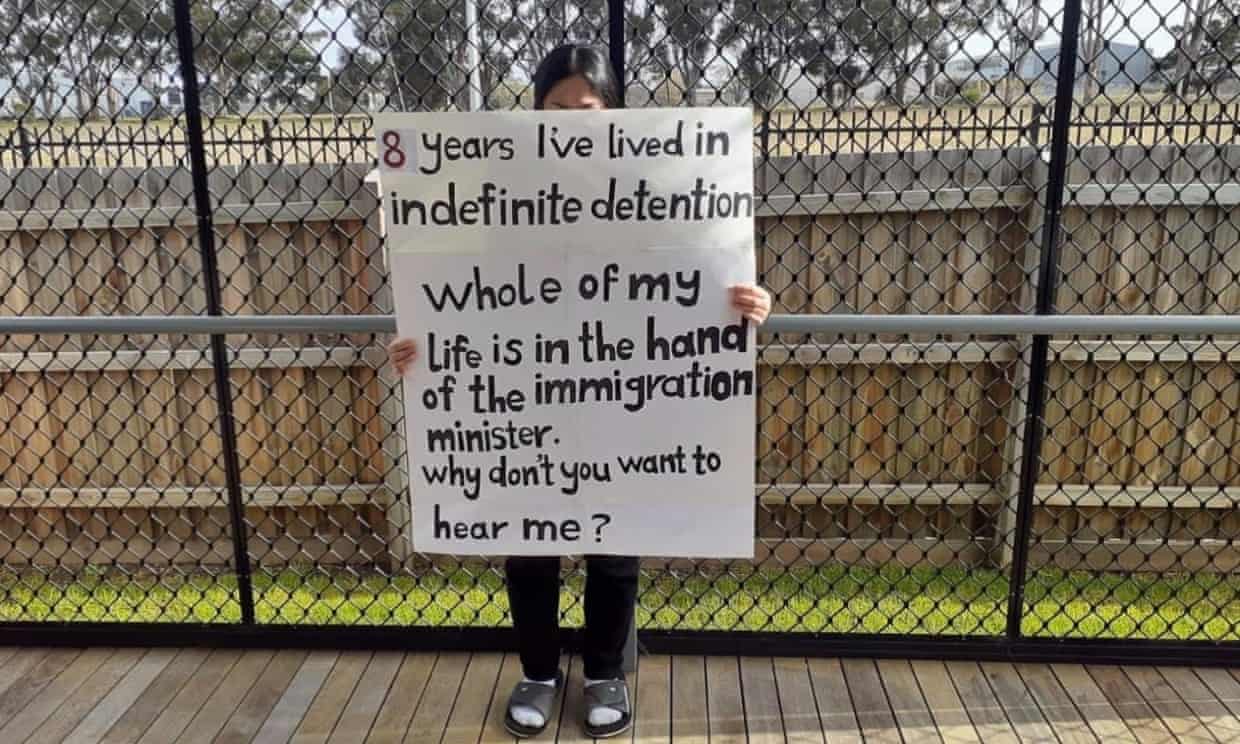 8 years I've lived in
indefinite detention
Whole of my
life is in the hand
of the immigration
minister.
why don't you want to
hear me?